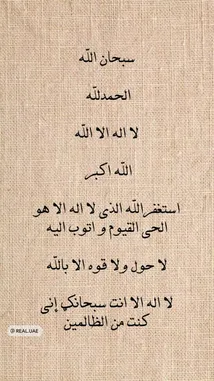 سبحان الله
الحمدلله
لا اله الا الله
الله اكبر
استغفرالله الذي لا اله الا هو
الحى القيوم و اتوب اليه
لا حول ولا قوه الا بالله
لا اله الا انت سبحانك إنى
كنت من الظالمين
@ REAL.UAE